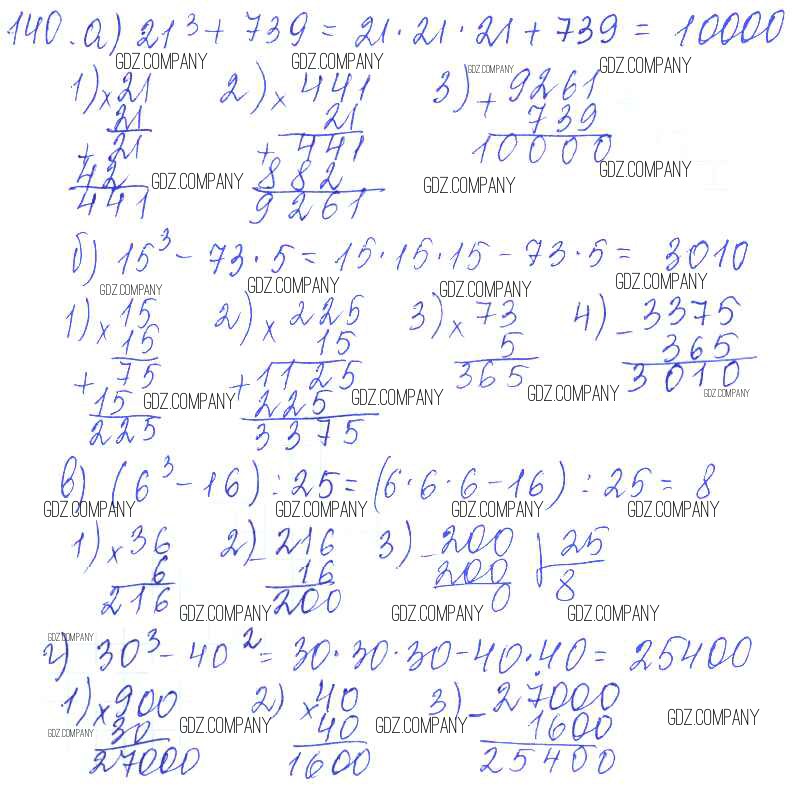 140. а) 21³ + 739 = 21·21·21 + 739 = 10000
GDZ.COMPANY GDZ.COMPANY GDZ.COMPANY GDZ.COMPANY
1) × 21 2) × 441 3) + 9261
21 21 739
+ 21 + 441 10000
42 GDZ.COMPANY 882 GDZ.COMPANY GDZ.COMPANY
441 9261
б) 15³ - 73·5 = 15·15·15 - 73·5 = 3010
GDZ.COMPANY GDZ.COMPANY GDZ.COMPANY GDZ.COMPANY
1) × 15 2) × 225 3) × 73 4) - 3375
15 15 5 365
+ 75 + 1125 365 3010
15 GDZ.COMPANY 225 GDZ.COMPANY GDZ.COMPANY GDZ.COMPANY
225 3375
в) (6³ - 16) : 25 = (6·6·6 - 16) : 25 = 8
GDZ.COMPANY GDZ.COMPANY GDZ.COMPANY GDZ.COMPANY
1) × 36 2) - 216 3) - 200 25
6 16 200 8
216 200 0
GDZ.COMPANY GDZ.COMPANY GDZ.COMPANY
GDZ.COMPANY
г) 30³ - 40² = 30·30·30 - 40·40 = 25400
1) × 900 2) × 40 3) - 27000
30 40 1600
GDZ.COMPANY GDZ.COMPANY GDZ.COMPANY GDZ.COMPANY
27000 1600 25400